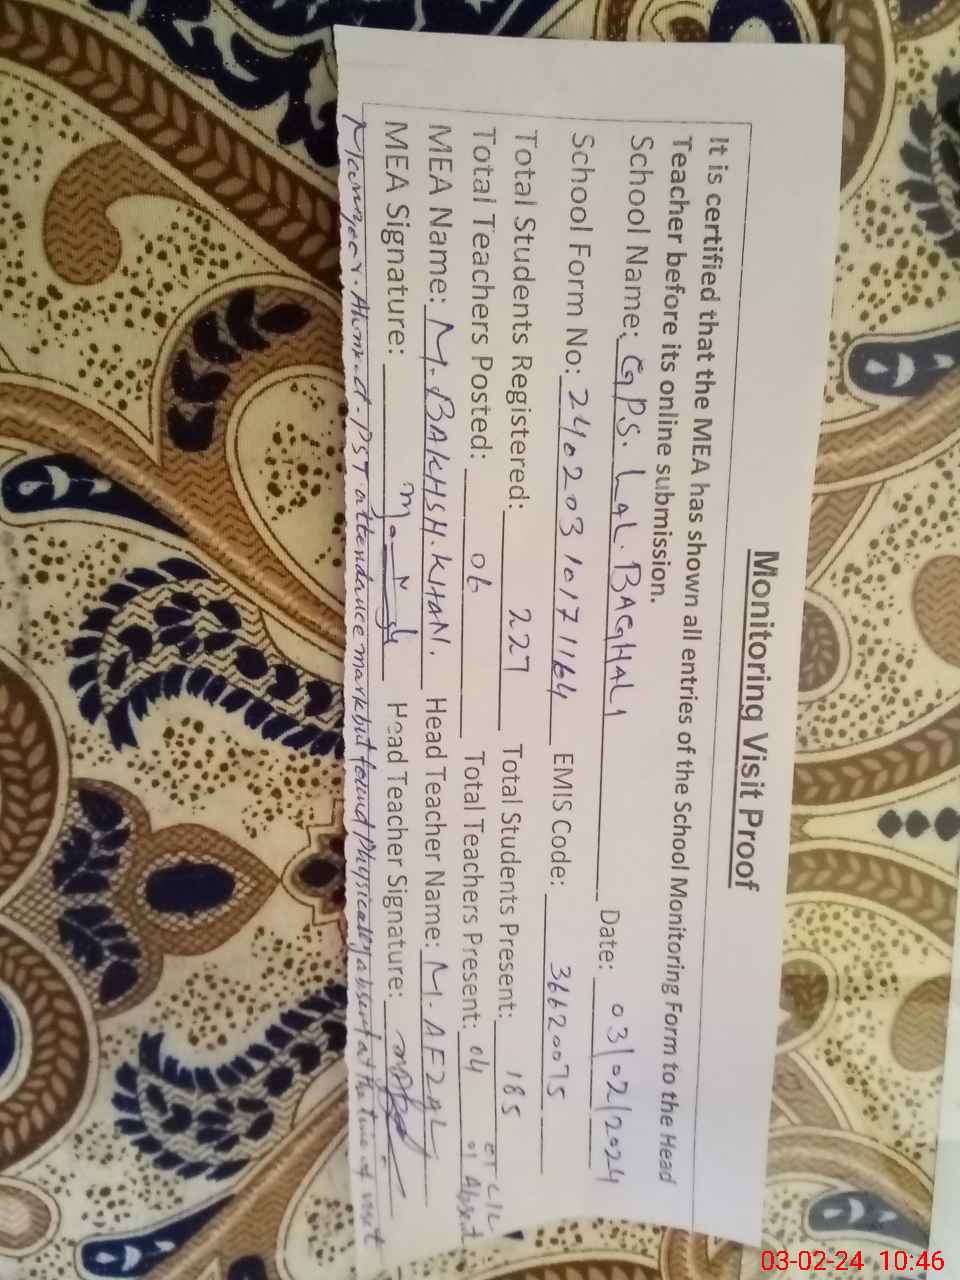 Monitoring Visit Proof
It is certified that the MEA has shown all entries of the School Monitoring Form to the Head
Teacher before its online submission.
School Name: GPS. LaL. BAGHALI Date: 03/02/2024
School Form No: 24020310171164 EMIS Code: 36620075
Total Students Registered: 227 Total Students Present: 185
Total Teachers Posted: 06 Total Teachers Present: 04 01 Absent
MEA Name: M. BAKHSH. KHaN. Head Teacher Name: M. AFZaL
MEA Signature: Head Teacher Signature:
Ahmed - PST attendance mark but found Physically absent at the time of visit
03-02-24 10:46